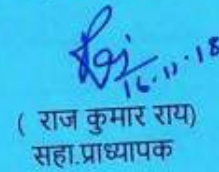 16.11.18
( राज कुमार राय)
सहा.प्राध्यापक